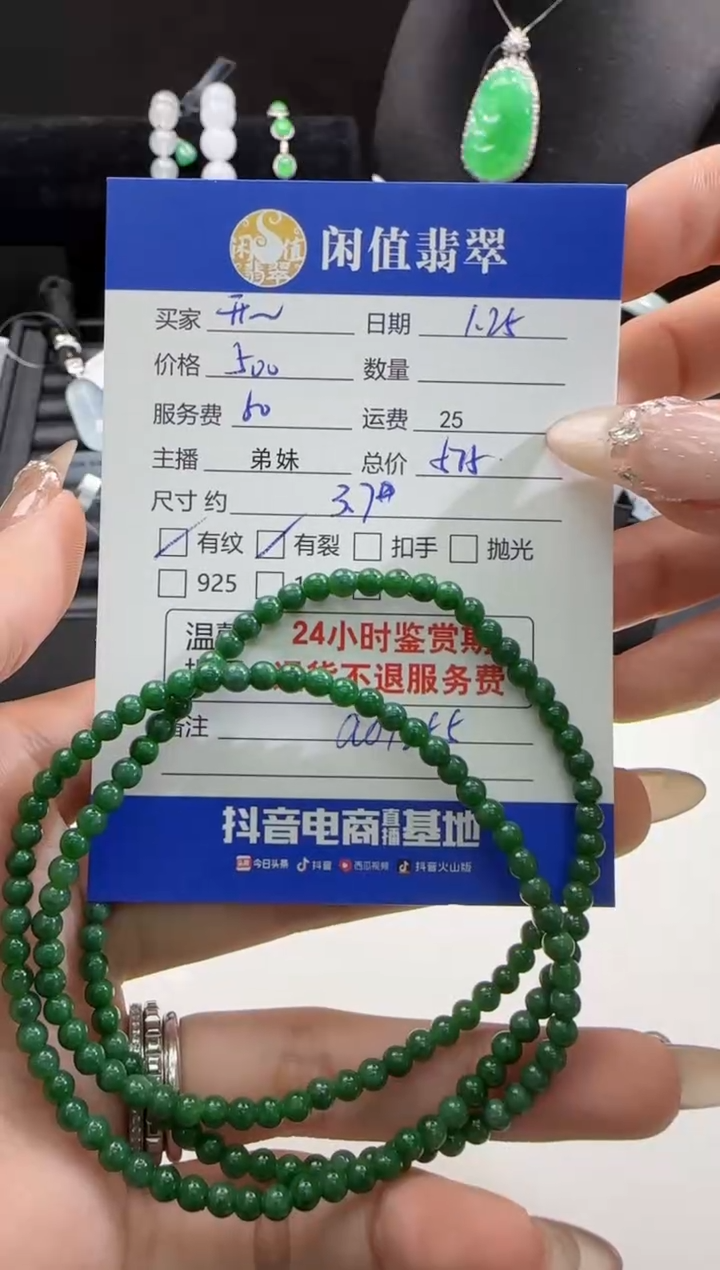 闲值翡翠
闲值翡翠
买家 开~ 日期 1.25
价格 500 数量
服务费 50 运费 25
主播 弟妹 总价 575
尺寸 约 3.7#
有纹 有裂 扣手 抛光
925
24小时鉴赏期
退货不退服务费
备注
抖音电商直播基地
今日头条 抖音 西瓜视频 抖音火山版